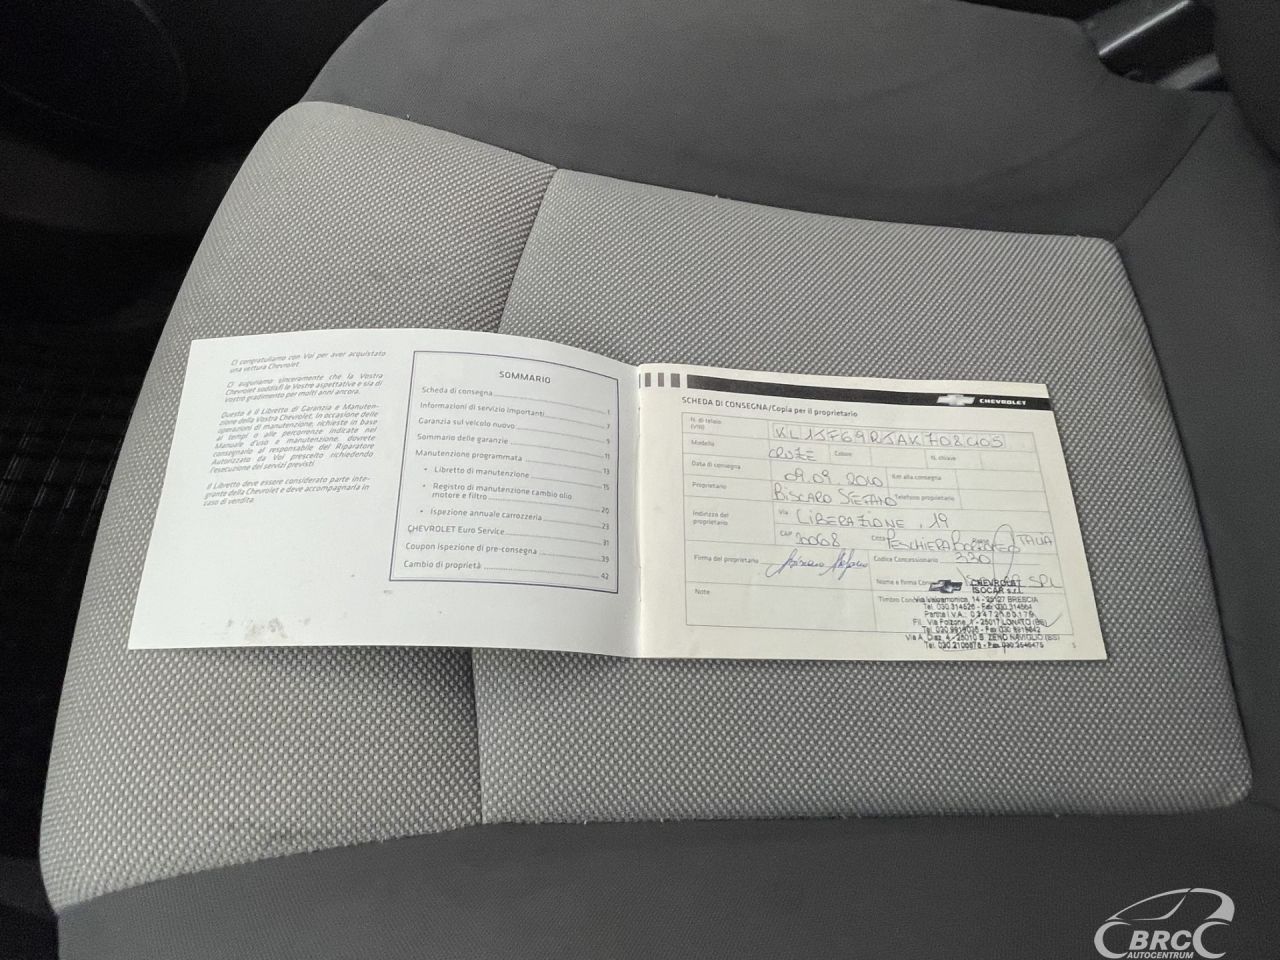 Ci congratuliamo con Voi per aver acquistato
una vettura Chevrolet.
Ci auguriamo sinceramente che la Vostra
Chevrolet soddisfi le Vostre aspettative e sia di
Vostro gradimento per molti anni ancora.
Questo è il Libretto di Garanzia e Manuten-
zione della Vostra Chevrolet. In occasione delle
operazioni di manutenzione, richieste in base
ai tempi o alle percorrenze indicate nel
Manuale d'uso e manutenzione, dovrete
consegnarlo al responsabile del Riparatore
Autorizzato da Voi prescelto richiedendo
l'esecuzione dei servizi previsti.
Il Libretto deve essere considerato parte inte-
grante della Chevrolet e deve accompagnarla in
caso di vendita.
SOMMARIO
Scheda di consegna 1
Informazioni di servizio importanti 7
Garanzia sul veicolo nuovo 9
Sommario delle garanzie 11
Manutenzione programmata 13
• Libretto di manutenzione 15
• Registro di manutenzione cambio olio
motore e filtro 20
• Ispezione annuale carrozzeria 23
CHEVROLET Euro Service 31
Coupon ispezione di pre-consegna 39
Cambio di proprietà 42
CHEVROLET
SCHEDA DI CONSEGNA/Copia per il proprietario
N. di telaio
(VIN)
Modello CRUZE Colore N. chiave
Data di consegna 09.09.2010 Km alla consegna
Proprietario BISCARO STEFANO Telefono proprietario
Indirizzo del
proprietario
Via LIBERAZIONE, 19
CAP 20068 Città PESCHIERA BORROMEO ITALIA
Firma del proprietario Biscaro Stefano Codice Concessionario 330
Nome e Firma
Note
Timbro
CHEVROLET
ISOCAR s.r.l.
Via Valcamonica, 14 - 25127 BRESCIA
Tel. 030.314526 - Fax 030.314564
Partita I.V.A.
25017 LONATO (BS)
25010 S. ZENO NAVIGLIO (BS)
BRC
AUTOCENTRUM